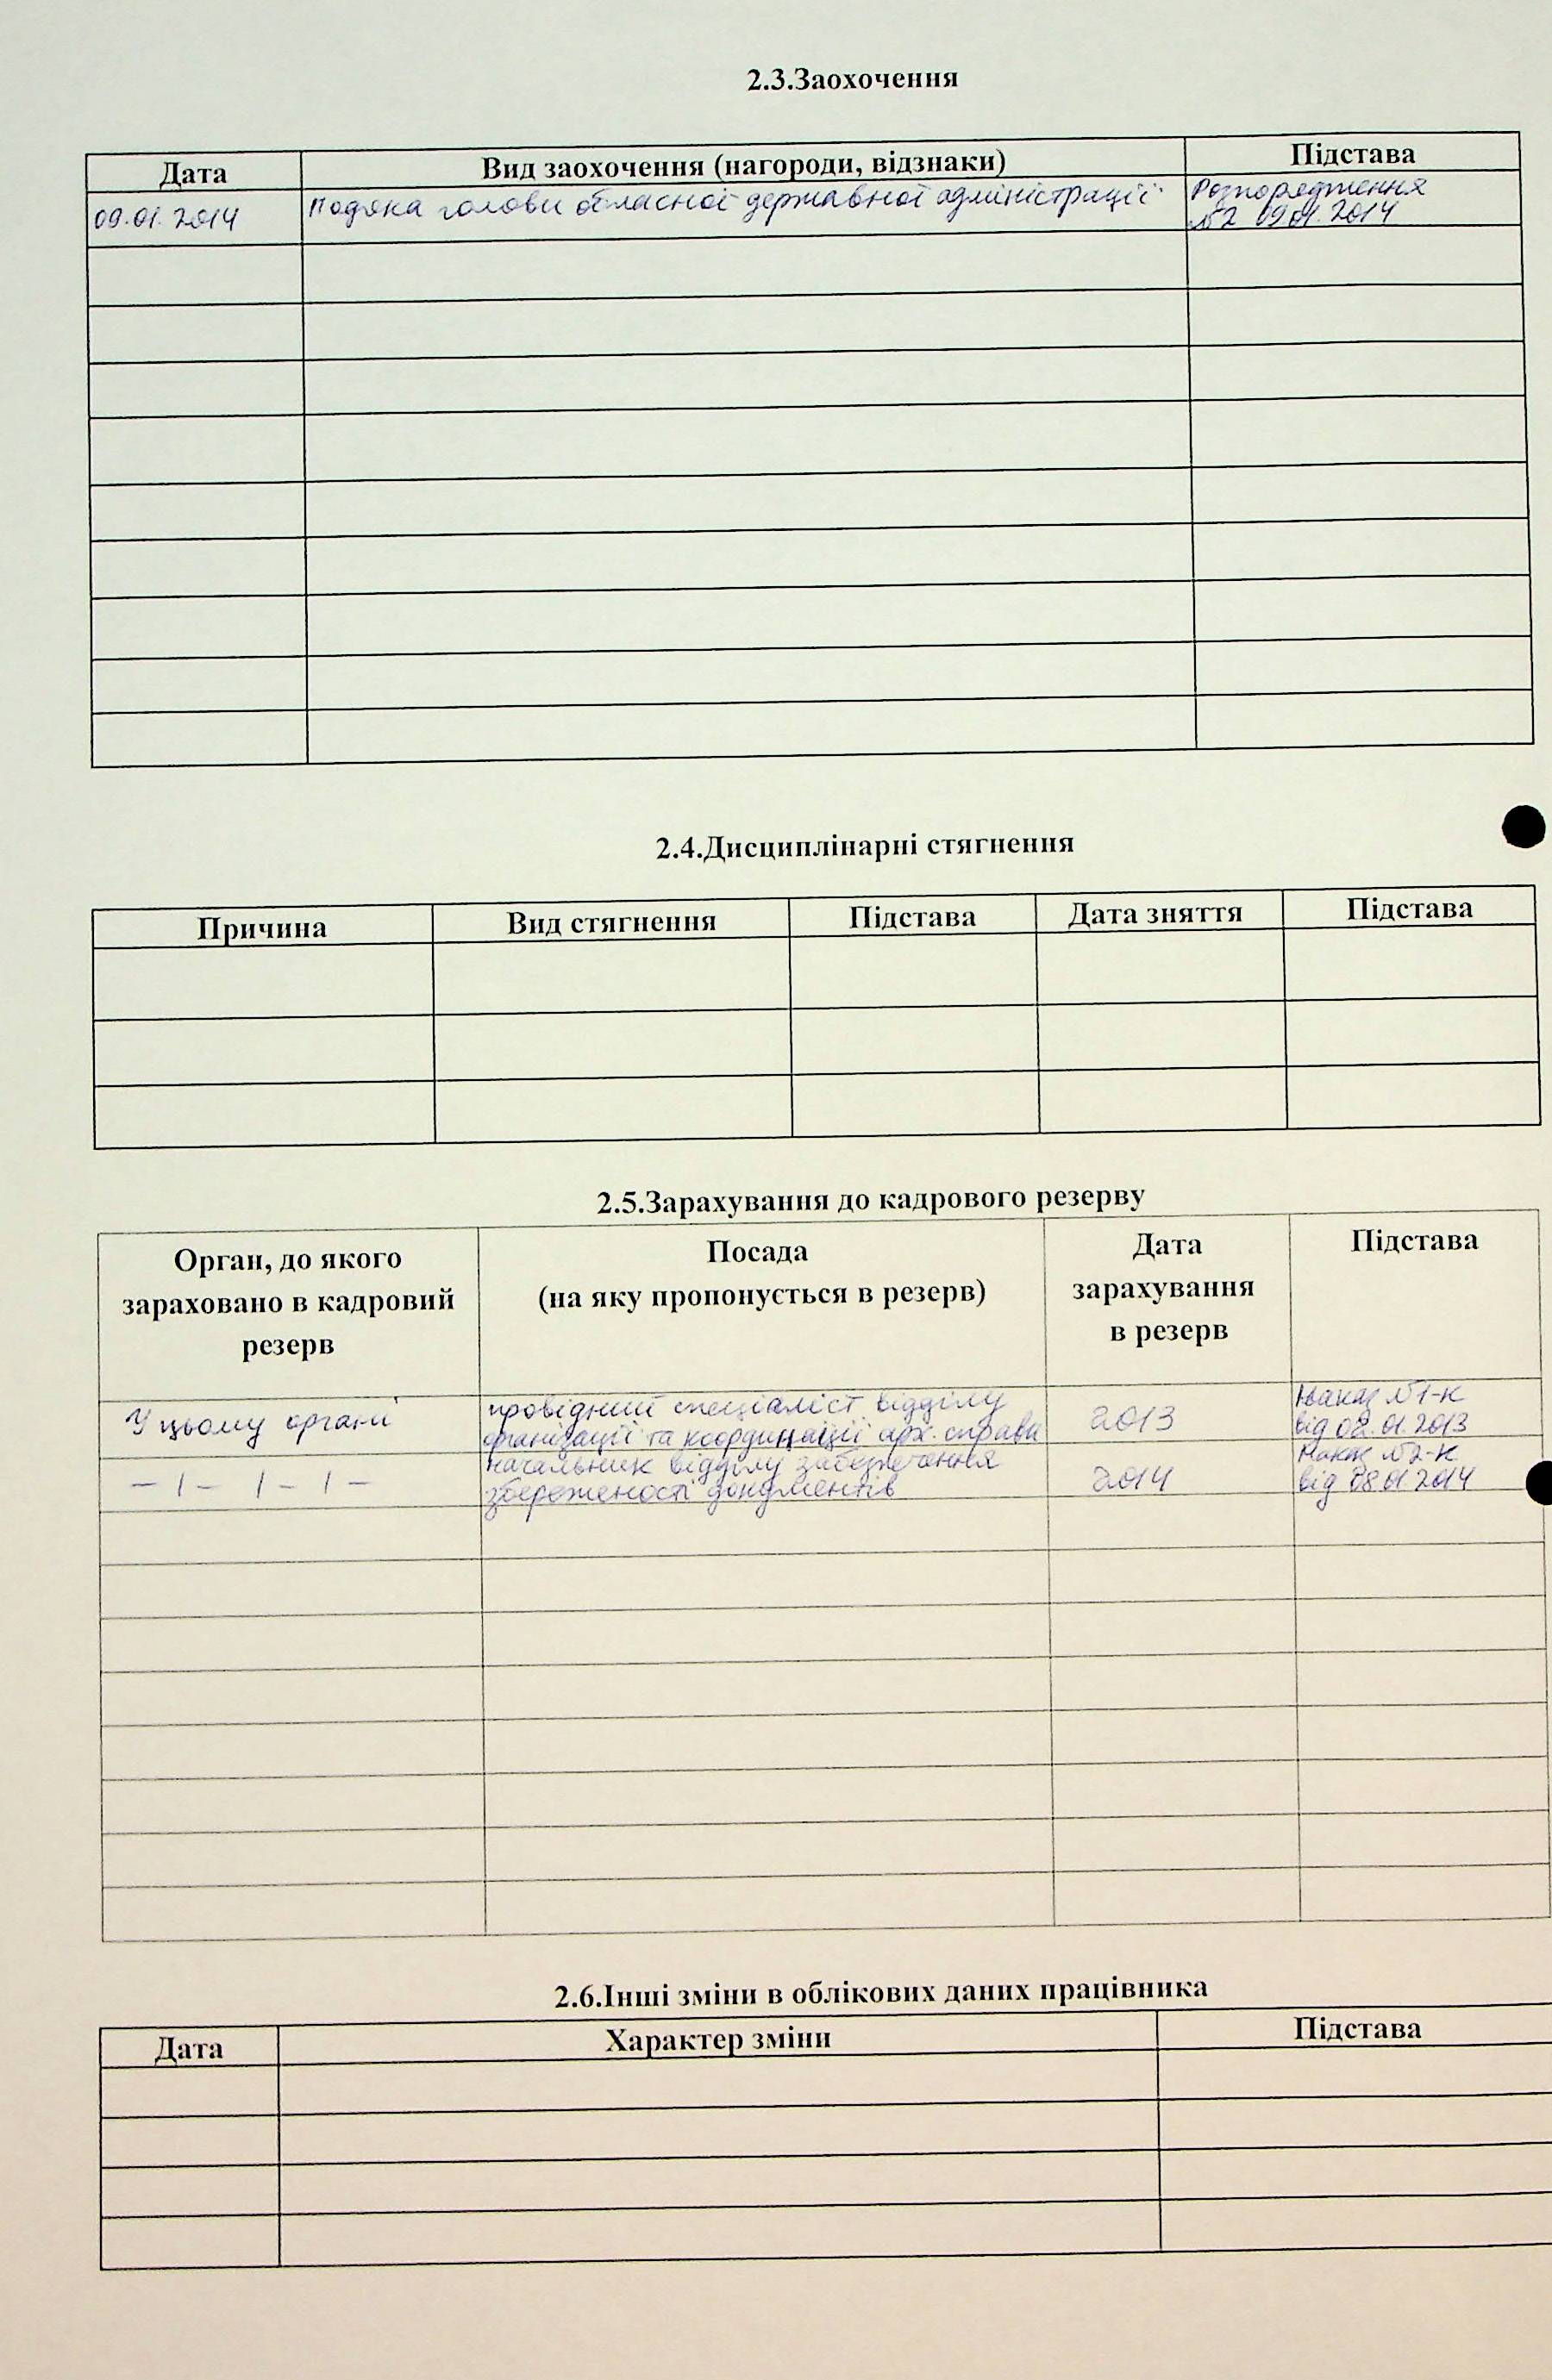 2.3.Заохочення
Дата Вид заохочення (нагороди, відзнаки) Підстава
09.01.2014 Подяка голови обласної державної адміністрації Розпорядження
№2 09.01.2014
2.4.Дисциплінарні стягнення
Причина Вид стягнення Підстава Дата зняття Підстава
2.5.Зарахування до кадрового резерву
Орган, до якого
зараховано в кадровий
резерв
Посада
(на яку пропонується в резерв)
Дата
зарахування
в резерв
Підстава
У цьому органі
провідний спеціаліст відділу
організації та координації арх. справи
2013
Наказ №1-К
від 02.01.2013
– / – / – / –
начальник відділу забезпечення
збереженості документів
2014
Наказ №2-К
від 08.01.2014
2.6.Інші зміни в облікових даних працівника
Дата Характер зміни Підстава